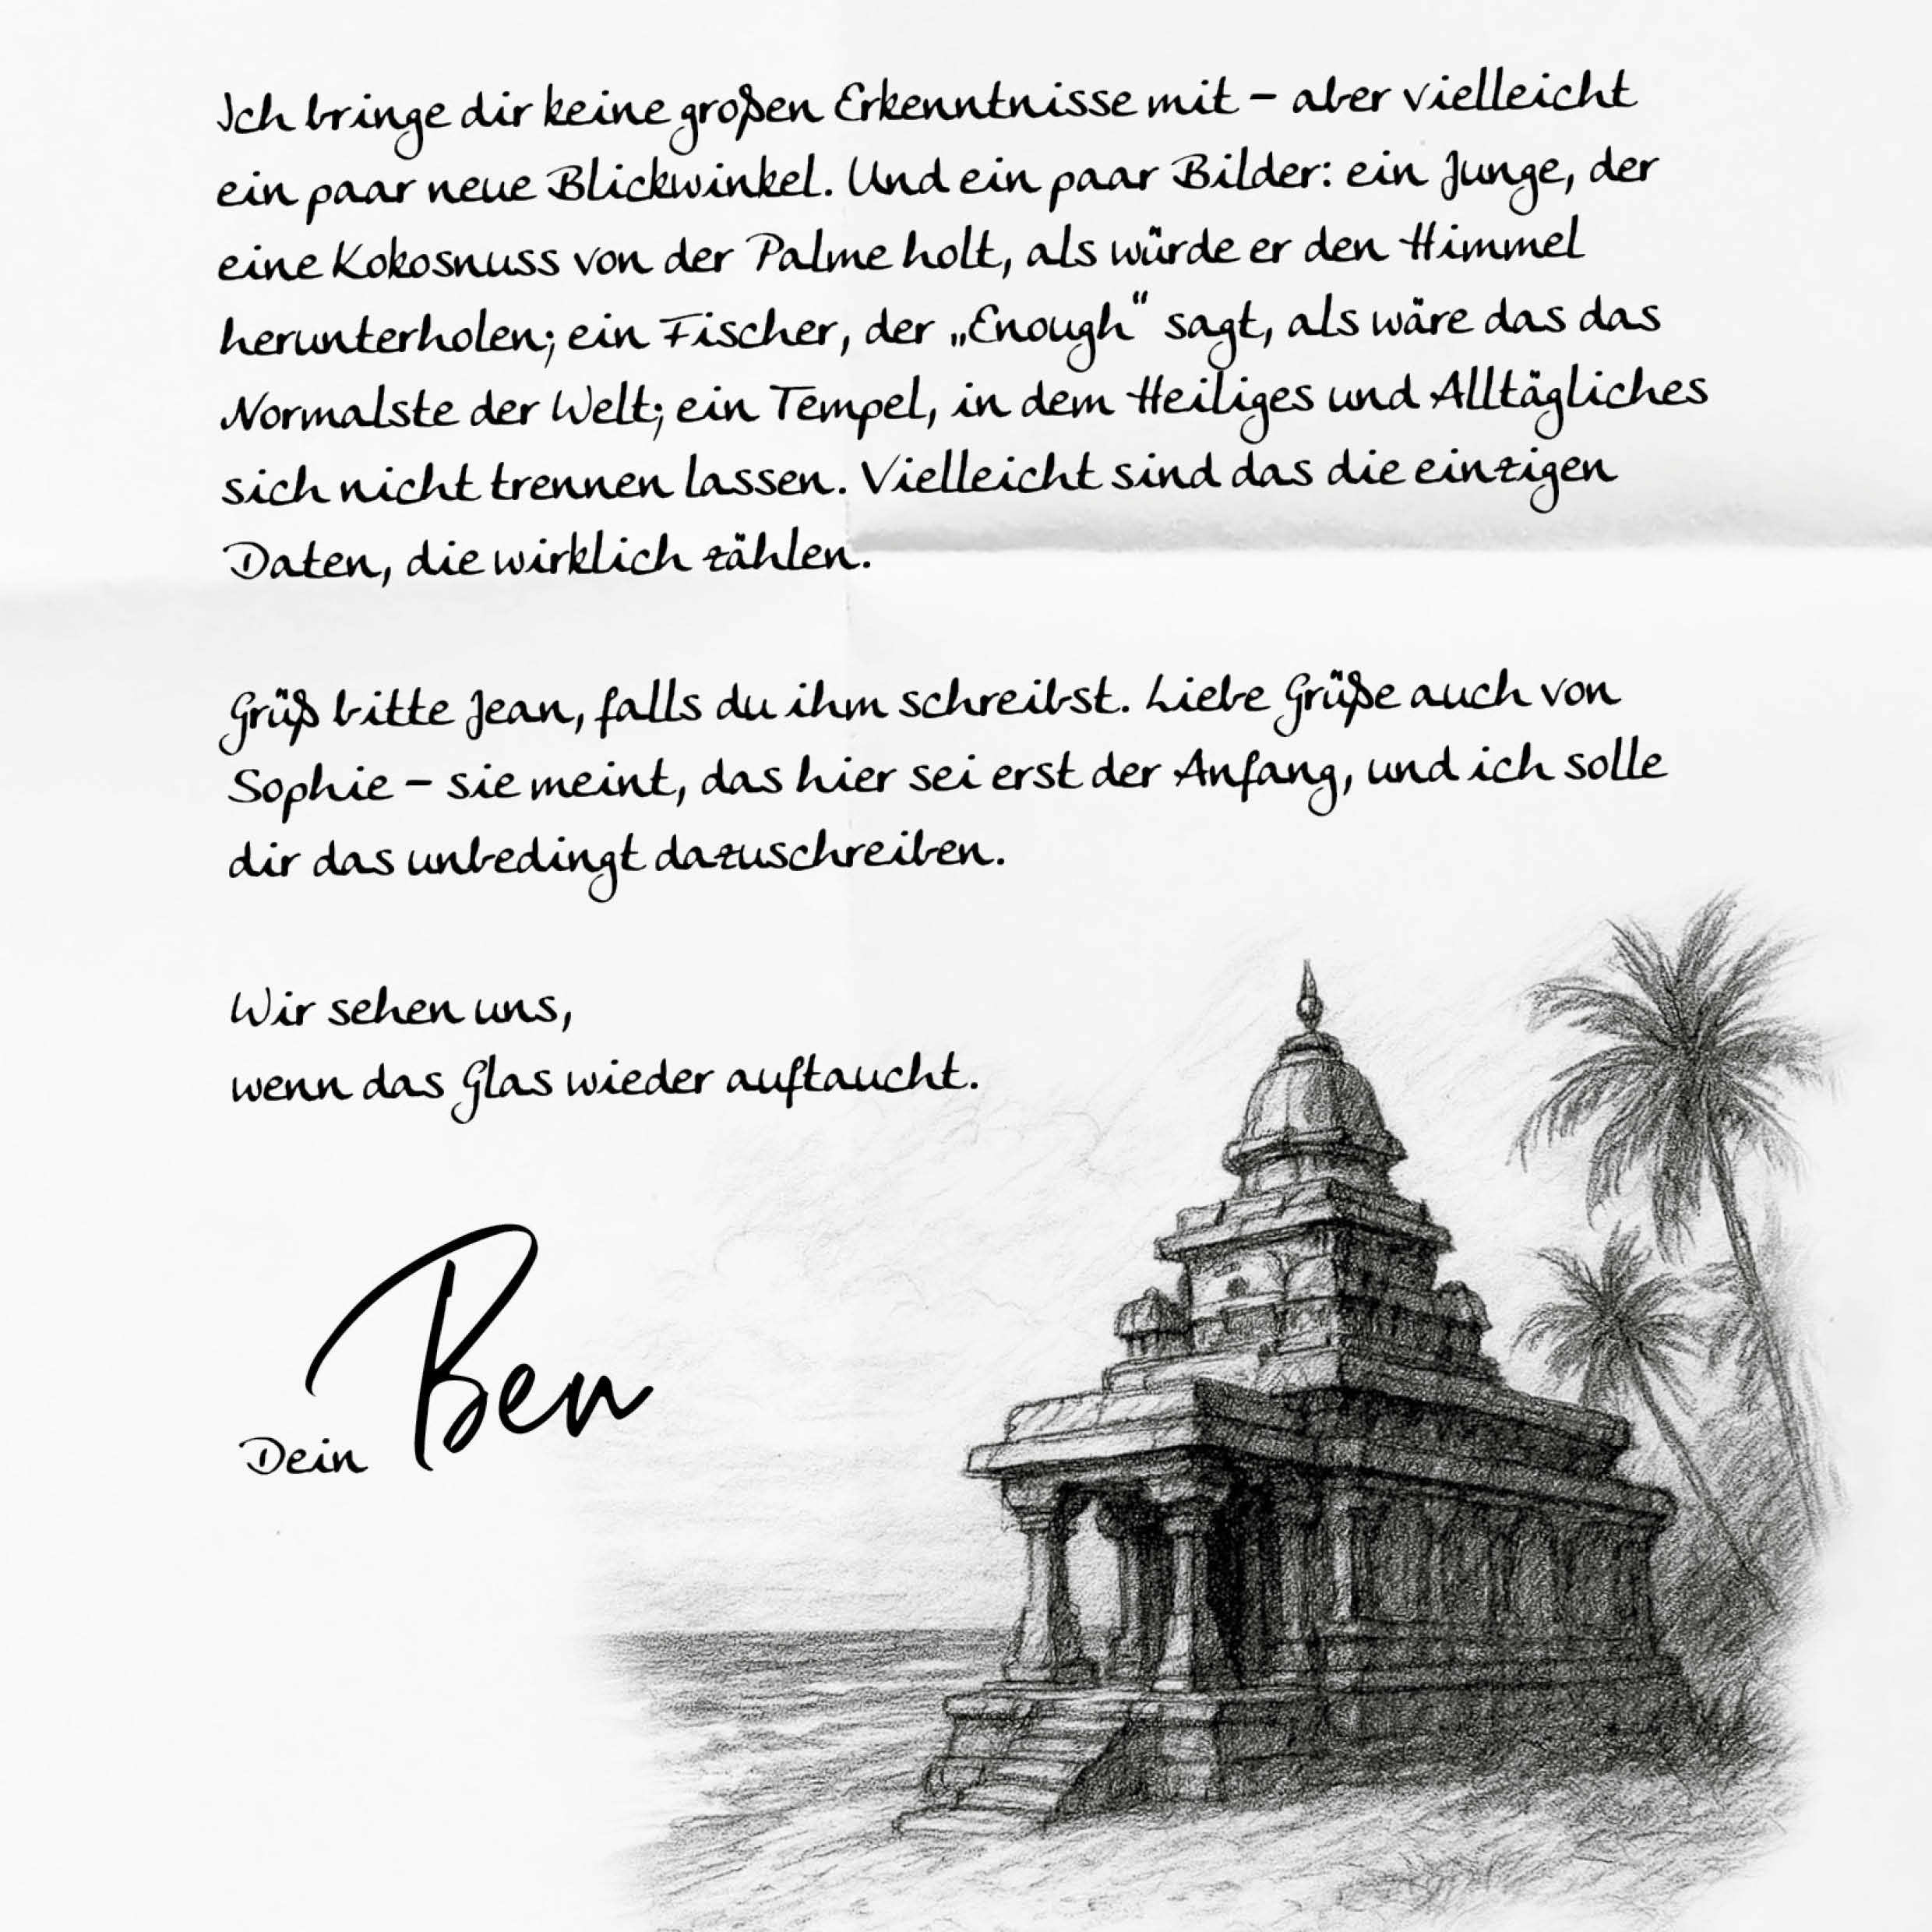 Ich bringe dir keine großen Erkenntnisse mit – aber vielleicht
ein paar neue Blickwinkel. Und ein paar Bilder: ein Junge, der
eine Kokosnuss von der Palme holt, als würde er den Himmel
herunterholen; ein Fischer, der „Enough“ sagt, als wäre das das
Normalste der Welt; ein Tempel, in dem Heiliges und Alltägliches
sich nicht trennen lassen. Vielleicht sind das die einzigen
Daten, die wirklich zählen.
Grüß bitte Jean, falls du ihm schreibst. Liebe Grüße auch von
Sophie – sie meint, das hier sei erst der Anfang, und ich solle
dir das unbedingt dazuschreiben.
Wir sehen uns,
wenn das Glas wieder auftaucht.
Dein Ben